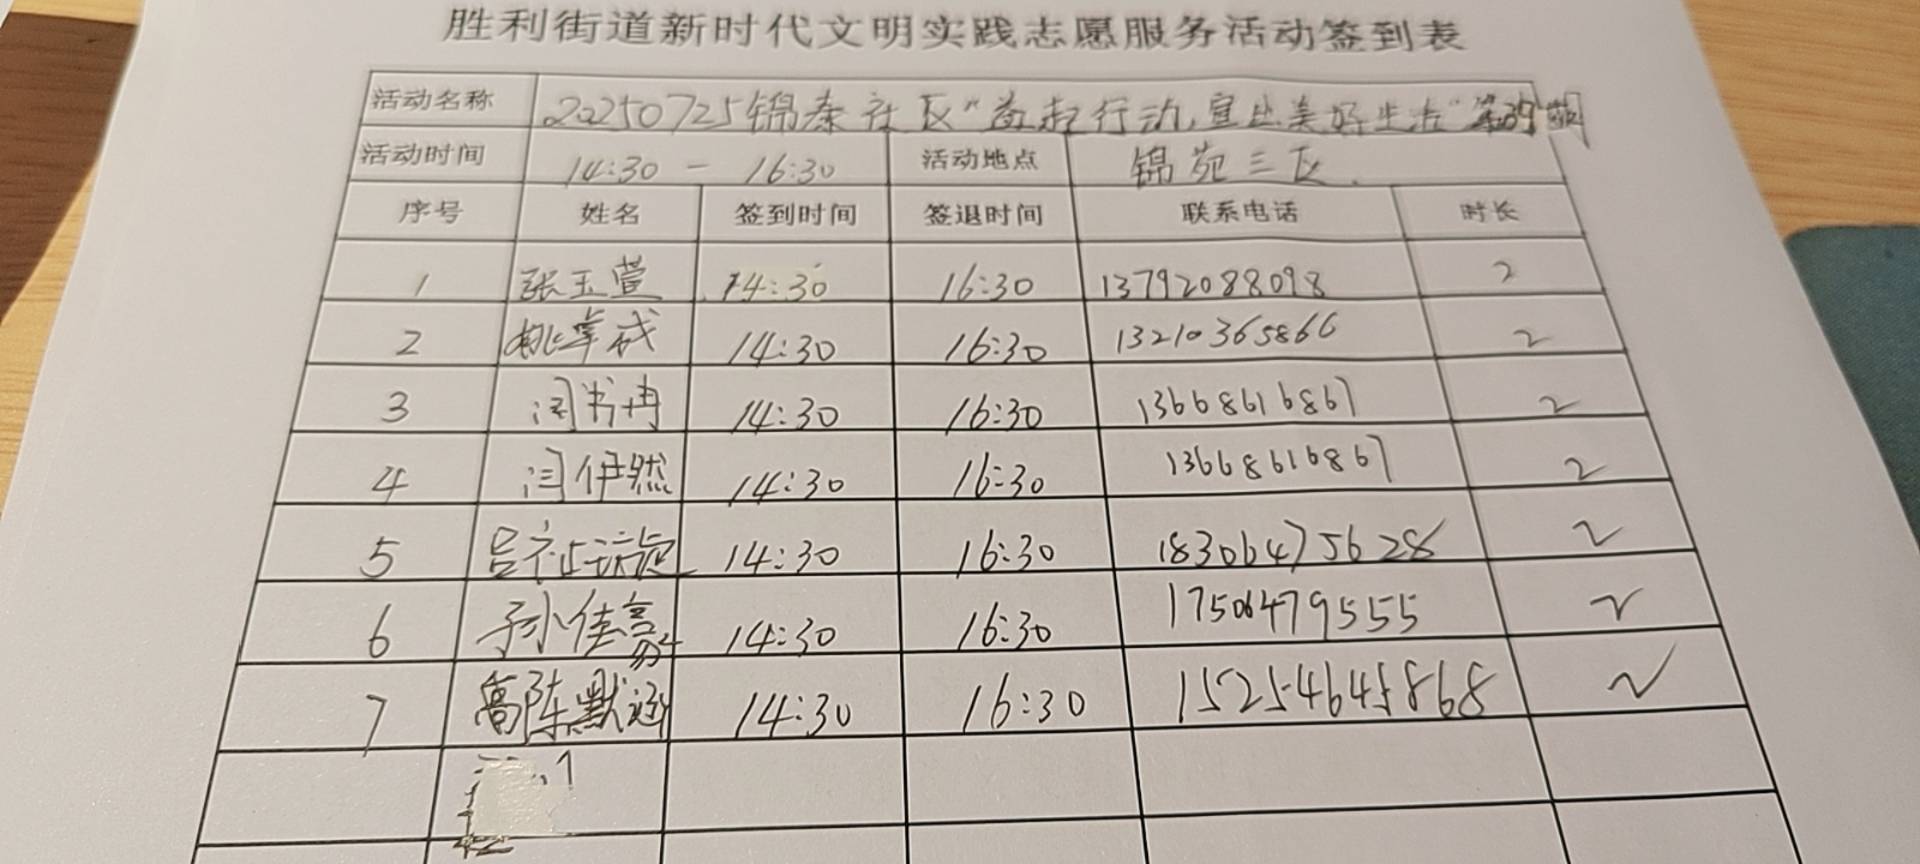 胜利街道新时代文明实践志愿服务活动签到表
活动名称 20250725锦泰社区“益起行动,宜此美好生活”第39期
活动时间 14:30 - 16:30 活动地点 锦苑三区.
序号 姓名 签到时间 签退时间 联系电话 时长
1 张玉萱 14:30 16:30 13792088098 2
2 姚掌成 14:30 16:30 13210365866 2
3 闫书冉 14:30 16:30 13668616867 2
4 闫伊然 14:30 16:30 13668616867 2
5 吕 14:30 16:30 18306475628 2
6 孙佳 14:30 16:30 17506479555 2
7 高陈默涵 14:30 16:30 15254645868 2